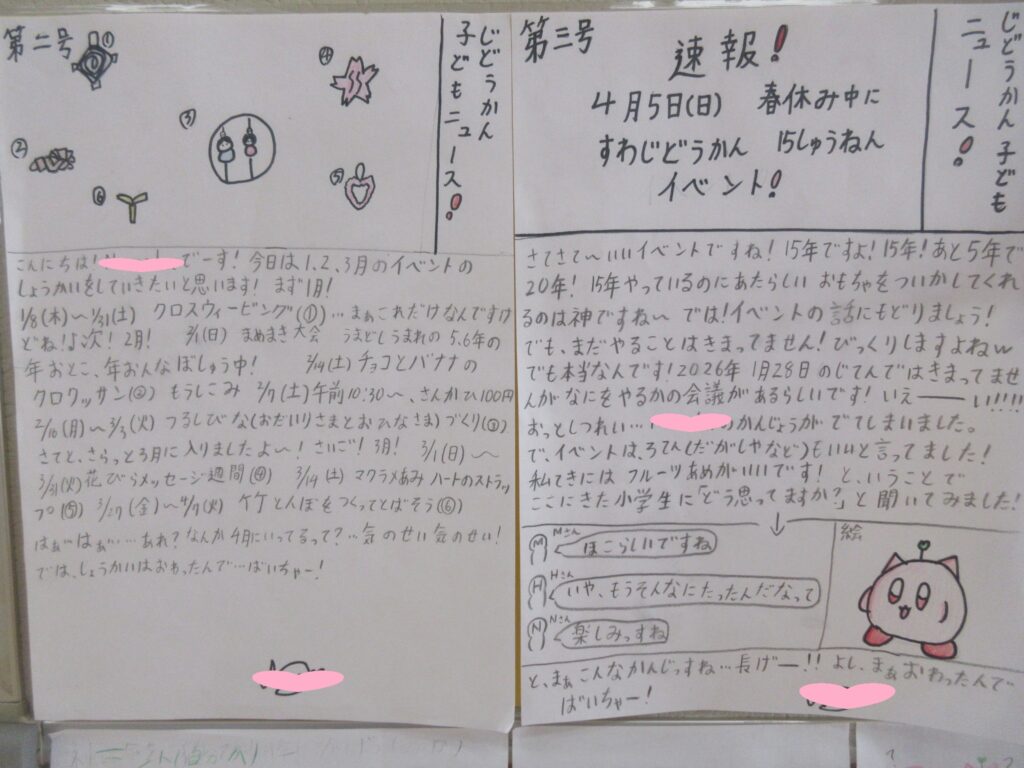 第二号
じどうかん
子どもニュース!
①
②
③
④
⑤
⑥
こんにちは! でーす! 今日は1、2、3月のイベントの
しょうかいをしていきたいと思います! まず1月!
1/8(木)〜1/31(土) クロスウィービング(①)…まぁこれだけなんですけ
どね!♪次! 2月! 2/1(日) まめまき大会 うまどしうまれの5.6年の
年おとこ、年おんなぼしゅう中! 2/14(土)チョコとバナナの
クロワッサン(②) もうしこみ 2/7(土)午前10:30〜、さんかひ100円
2/16(月)〜3/3(火)つるしびな(おだいりさまとおひなさま)づくり(③)
さてと、さらっと3月に入りましたよ〜! さいご! 3月! 3/1(日)〜
3/31(火)花びらメッセージ週間(④) 3/14(土)マクラメあみ ハートのストラッ
プ(⑤) 3/27(金)〜4/7(火) 竹とんぼをつくってとばそう(⑥)
はぁ…はぁ……あれ?なんか4月にいってるって?…気のせい気のせい!
では、しょうかいはおわったんで…ばいちゃー!
第三号
じどうかん 子ども
ニュース!
速報!
4月5日(日) 春休み中に
すわじどうかん 15しゅうねん
イベント!
さてさて〜いいイベントですね! 15年ですよ! 15年!あと5年で
20年! 15年やっているのにあたらしい おもちゃをついかしてくれ
るのは神ですね〜 では!イベントの話にもどりましょう!
でも、まだやることはきまってません!びっくりしますよねw
でも本当なんです!2026年 1月28日のじてんではきまってませ
んがなにをやるかの会議があるらしいです! いえーーい!!!!
おっとしつれい… のかんじょうがでてしまいました。
で、イベントは、ろてん(だがしやなど)もいいと言ってました!
私てきには フルーツあめがいいです! と、いうことで
ここにきた小学生に「どう思ってますか?」と聞いてみました!
M Mさん ほこらしいですね
H Hさん いや、もうそんなにたったんだなって
N Nさん 楽しみっすね
絵
と、まぁこんなかんじっすね…長げー!! よし、まぁおわったんで
ばいちゃー!